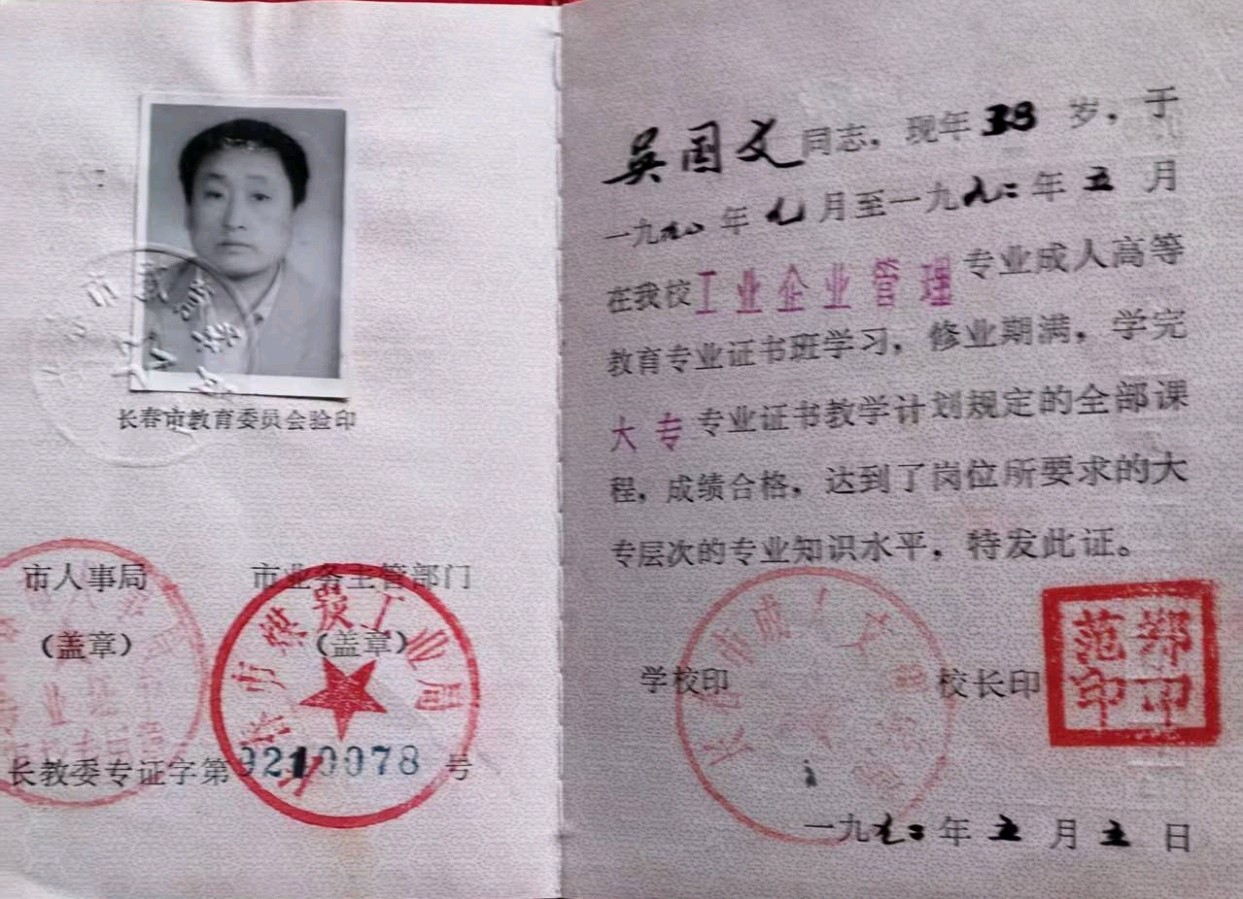 长春市教育委员会验印
市人事局 市业务主管部门
(盖章) (盖章)
市煤炭工业局
长教委专证字第9210078号
吴国文同志，现年38岁，于
一九九〇年九月至一九九二年五月
在我校工业企业管理专业成人高等
教育专业证书班学习，修业期满，学完
大专专业证书教学计划规定的全部课
程，成绩合格，达到了岗位所要求的大
专层次的专业知识水平，特发此证。
学校印 校长印
一九九二年五月五日